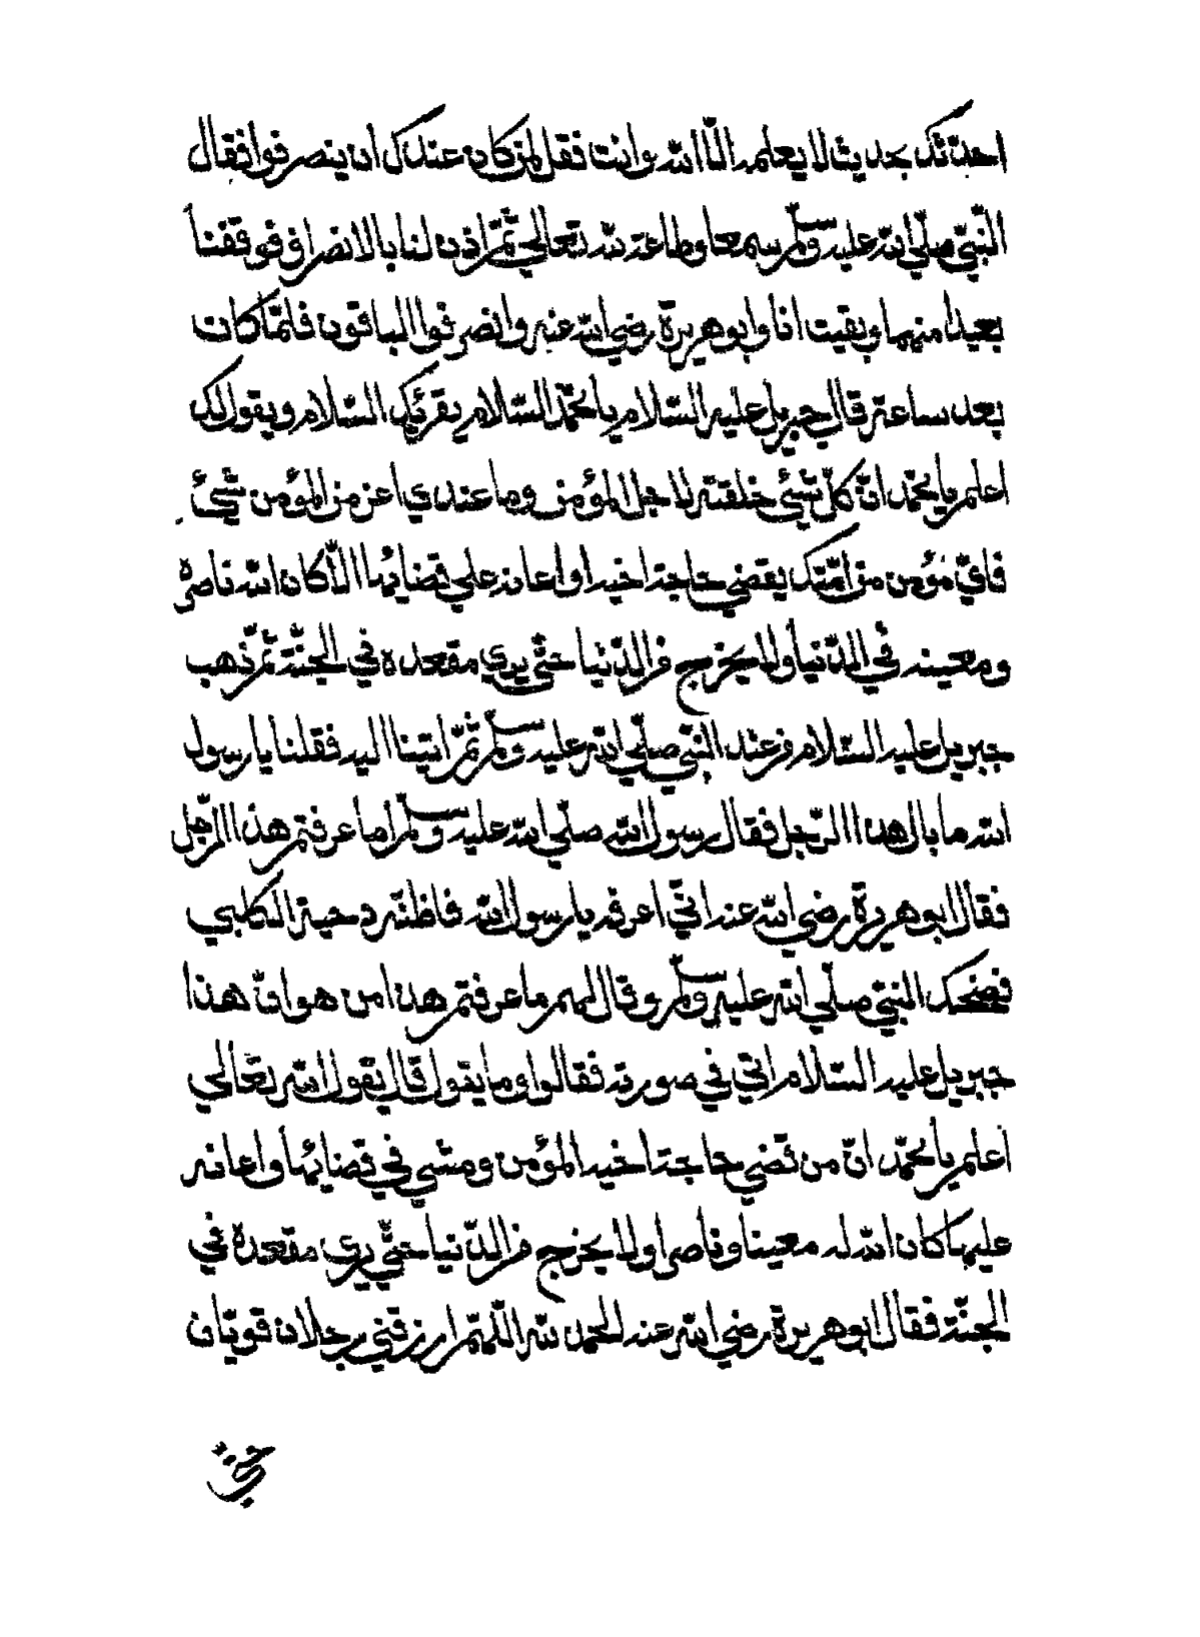 احدّثك بحديث لا يعلمه الّا الله وانت فقل لمن كان عندك ان ينصرفوا فقال
النّبيّ صلّي الله عليه وسلّم سمعا وطاعة لله تعالي ثمّ اذن لنا بالانصراف فوقفنا
بعيدا منهما وبقيت انا وابو هريرة رضي الله عنه وانصرفوا الباقون فلمّا كان
بعد ساعة قال جبريل عليه السّلام يا محمّد السّلام يقرئك السّلام ويقول لك
اعلم يا محمّد انّ كلّ شيئ خلقته لاجل المؤمن وما عندي اعز من المؤمن شيئ
فايّ مؤمن من امّتك يقضي حاجة اخيه او اعانه علي قضائها الّا كان الله ناصره
ومعينه في الدّنيا ولا يخرج من الدّنيا حتّي يري مقعده في الجنّة ثمّ ذهب
جبريل عليه السّلام من عند النّبيّ صلّي الله عليه وسلّم ثمّ اتينا اليه فقلنا يا رسول
الله ما بال هذا الرّجل فقال رسول الله صلّي الله عليه وسلّم اما عرفتم هذا الرّجل
فقال ابو هريرة رضي الله عنه انّي اعرفه يا رسول الله فاظنّه دحية الكلبي
فضحك النبيّ صلّي الله عليه وسلّم وقال لهم ما عرفتم هذا من هو انّ هذا
جبريل عليه السّلام اتي في صورته فقالوا وما يقول قال يقول الله تعالي
اعلم يا محمّد انّ من قضي حاجة اخيه المؤمن ومشي في قضائها واعانه
عليها كان الله له معينا وناصرا ولا يخرج من الدّنيا حتّي يري مقعده في
الجنّة فقال ابو هريرة رضي الله عنه الحمد لله اللّهمّ ارزقني رجلان قويّان